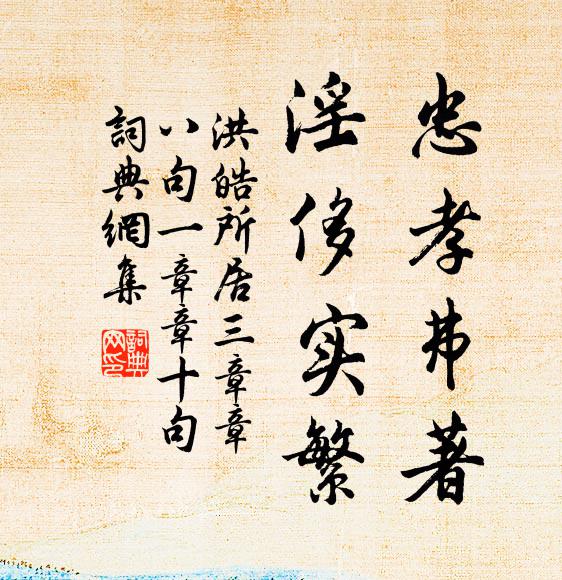 忠孝弗著
淫侈实繁
洪皓所居三章章
八句一章章十句
詞典網集
詞典
网印